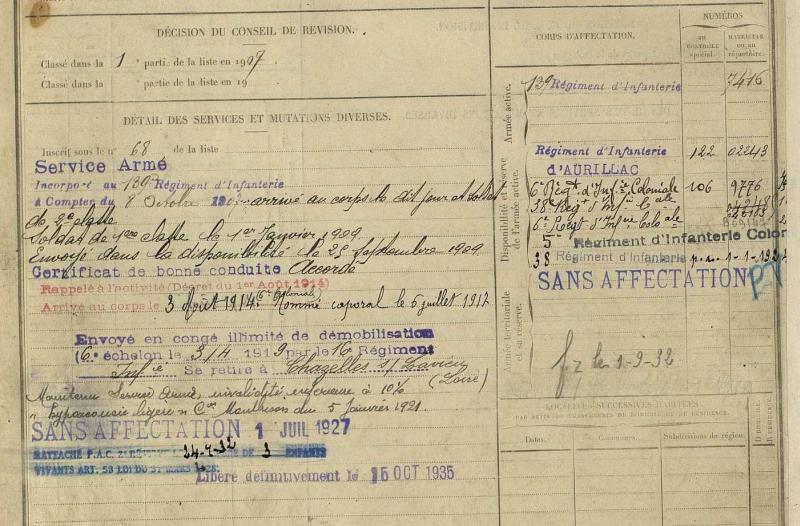 DÉCISION DU CONSEIL DE REVISION.
Classé dans la 1 partie de la liste en 1907.
Classé dans la partie de la liste en 19
DÉTAIL DES SERVICES ET MUTATIONS DIVERSES.
Inscrit sous le n° 68 de la liste
Service Armé
Incorporé au 139e Régiment d'Infanterie
à Compter du 8 Octobre arrivé au corps le dit jour et soldat
de 2e classe
Soldat de 1ère classe le 1er Janvier 1909
Envoyé dans la disponibilité le 25 Septembre 1909.
Certificat de bonne conduite Accordé
Rappelé à l'activité (Décret du 1er Août 1914)
Arrivé au corps le 3 Août 1914. 6e Coloniale) Nommé caporal le 6 juillet 1917
Envoyé en congé illimité de démobilisation
(6e échelon le 3/4 1919 par le 16e Régiment
Infie Se retire à Chazelles s/ Lavieu
(Loire)
Maintenu Service Armé, invalidité inférieure à 10%
" hypoacousie légère " Con Montbrison du 5 Janvier 1921.
SANS AFFECTATION 1 JUIL 1927
RATTACHÉ P.A.C. 24-7-32 DE 3 ENFANTS
VIVANTS ART. 58 LOI DU 31 MARS 1928.
Libéré définitivement le 15 OCT 1935
CORPS D'AFFECTATION.
NUMÉROS
au contrôle spécial.
matricule ou au répertoire.
Armée active.
139 Régiment d'Infanterie 7416
Disponibilité et réserve de l'armée active.
Régiment d'Infanterie 122 02243
d'AURILLAC
6e Régt d'Infie Coloniale 106 9776
38e Régt d'Inf Cale
6e Régt d'Infie Colole
5 Régiment d'Infanterie Color
38 Régiment d'Infanterie
SANS AFFECTATION
Armée territoriale et sa réserve.
le 1-9-32
LOCALITÉS SUCCESSIVES HABITÉES
PAR
Dates.
Communes.
Subdivisions de région.
D. DOMICILE.
R. RÉSIDENCE.